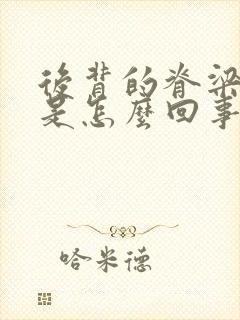 後背的脊梁
是怎麼回事
哈米德